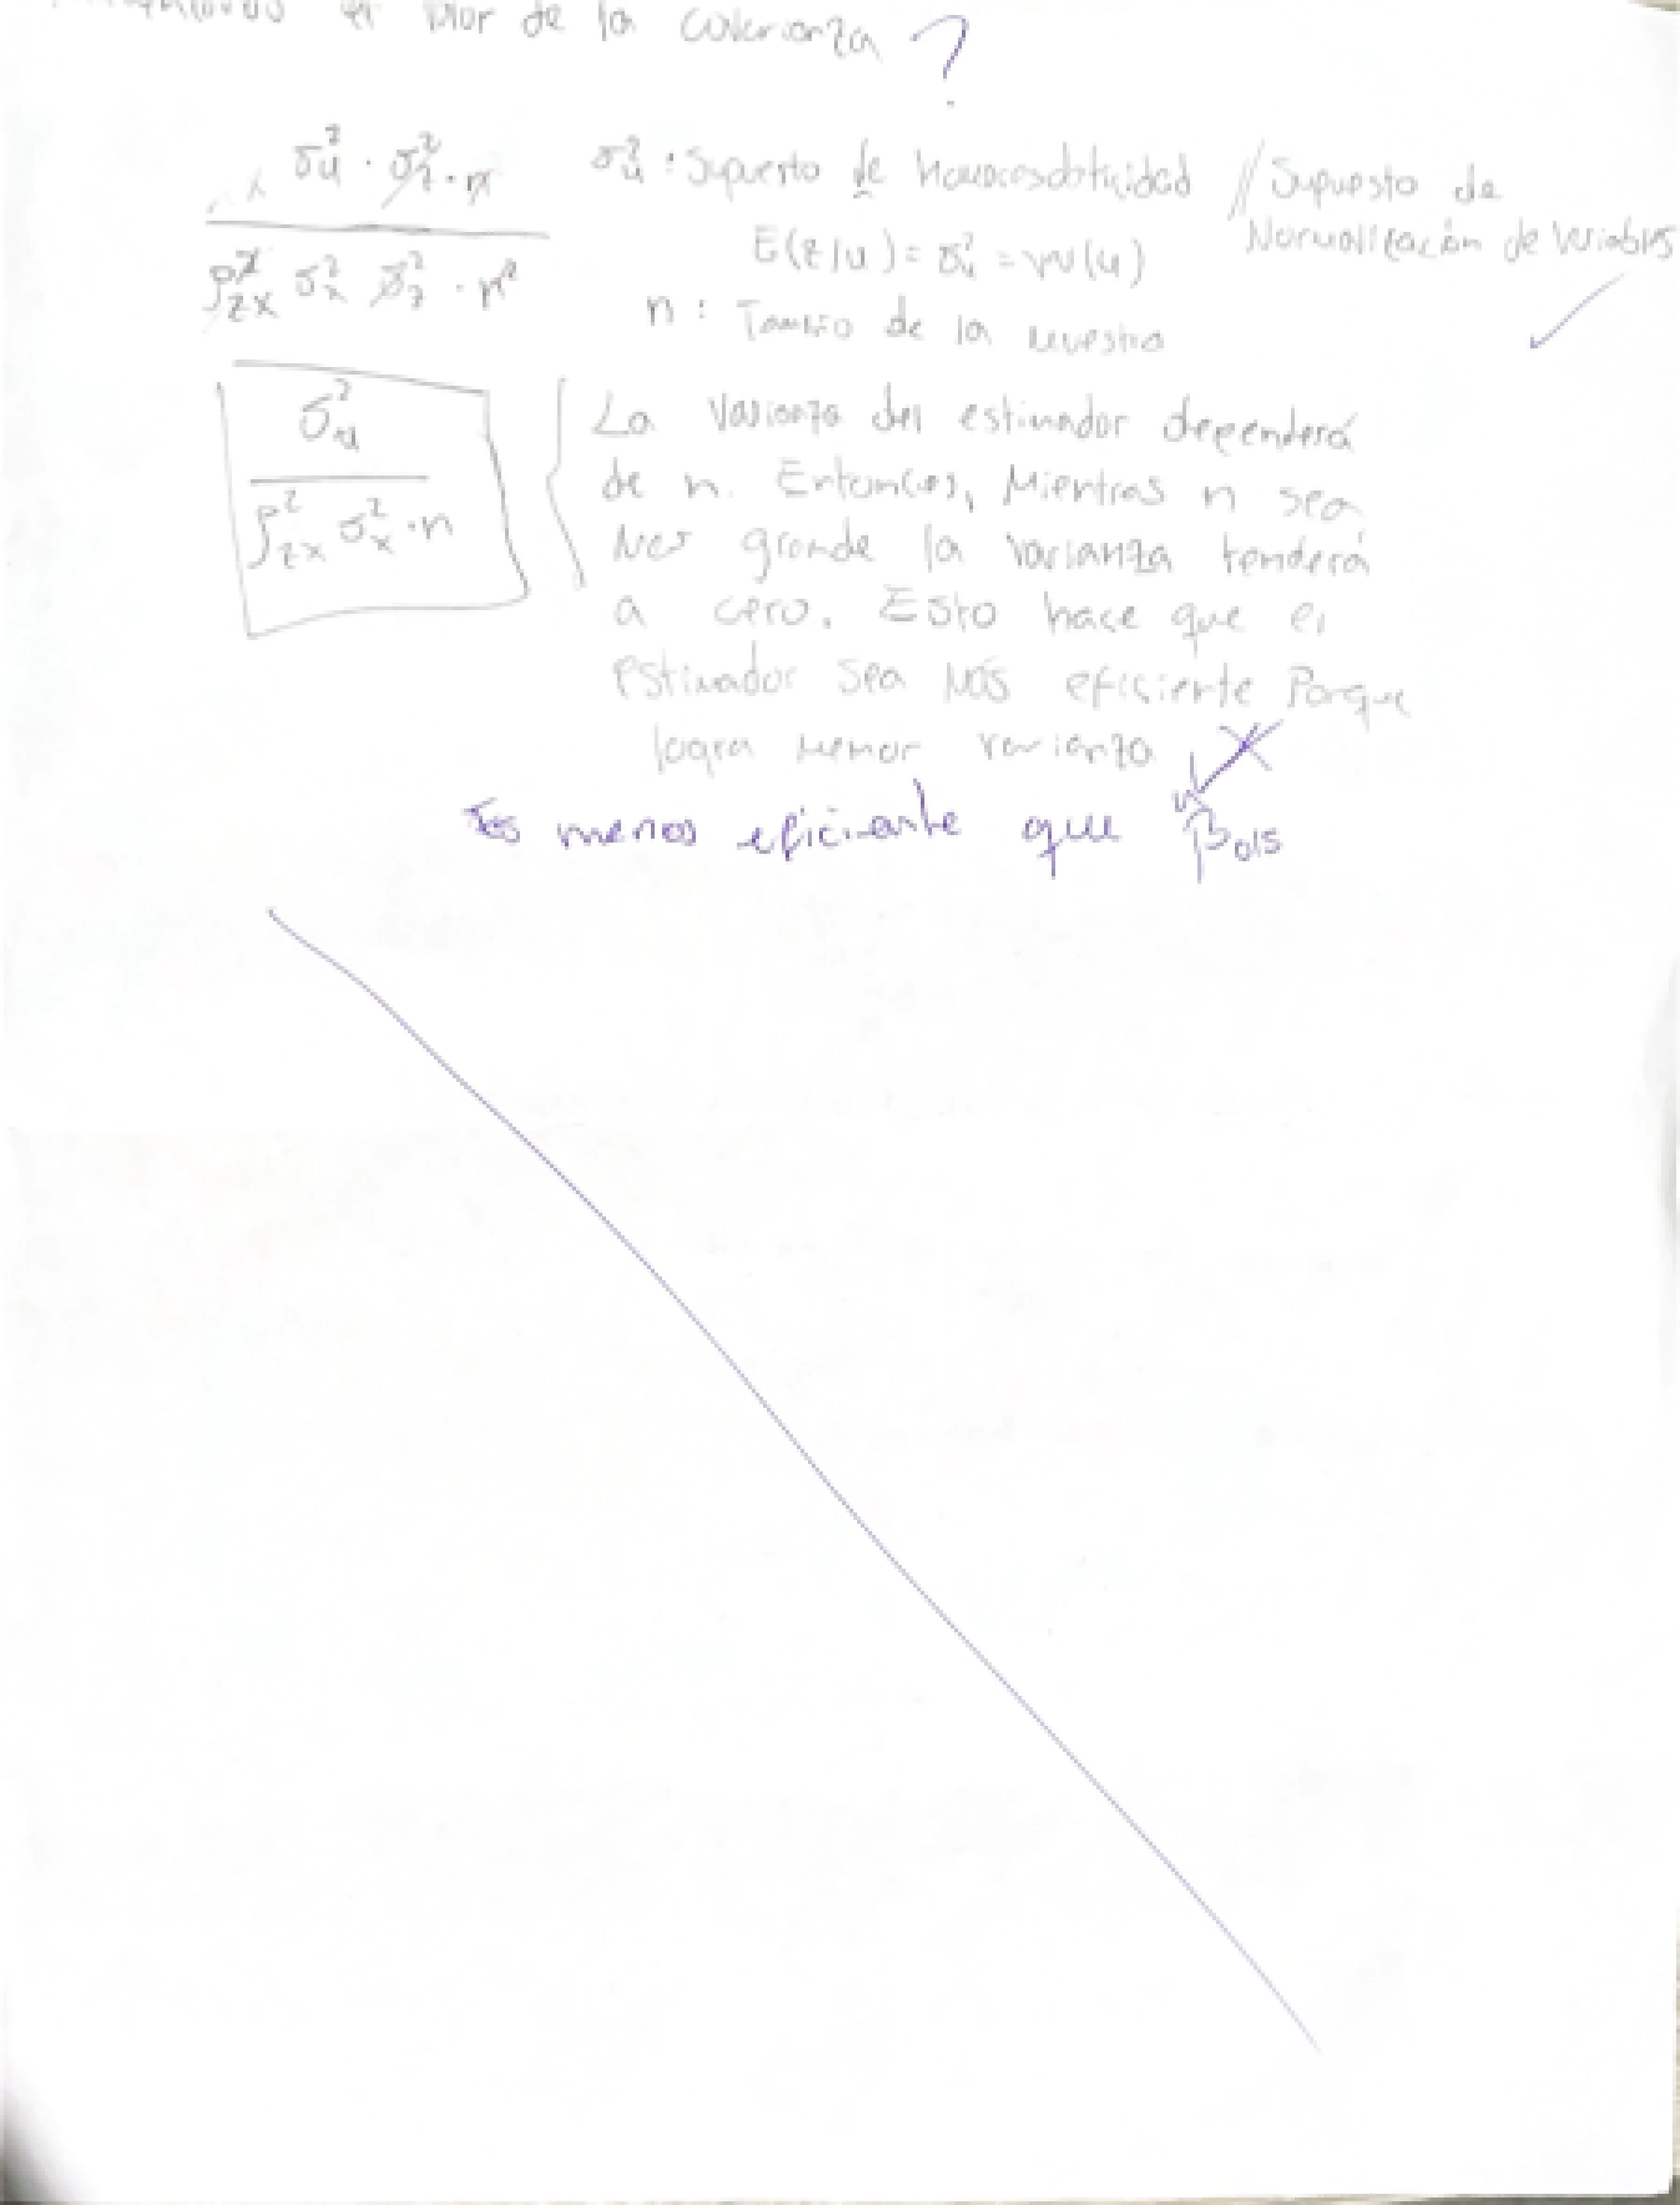 el valor de la covarianza ?
σ²u · σ²z · n
ρ²zx σ²x σ²z · n²
σ²u : Supuesto de homocesdaticidad // Supuesto de
Normalización de variables
E(z/u) = σ²u = var(u)
n : Tamaño de la muestra
✓
σ²u
ρ²zx σ²x · n
La varianza del estimador dependerá
de n. Entonces, Mientras n sea
Mas grande la varianza tenderá
a cero. Esto hace que el
estimador sea Más eficiente Porque
logra menor varianza
Es menos eficiente que β̂ols